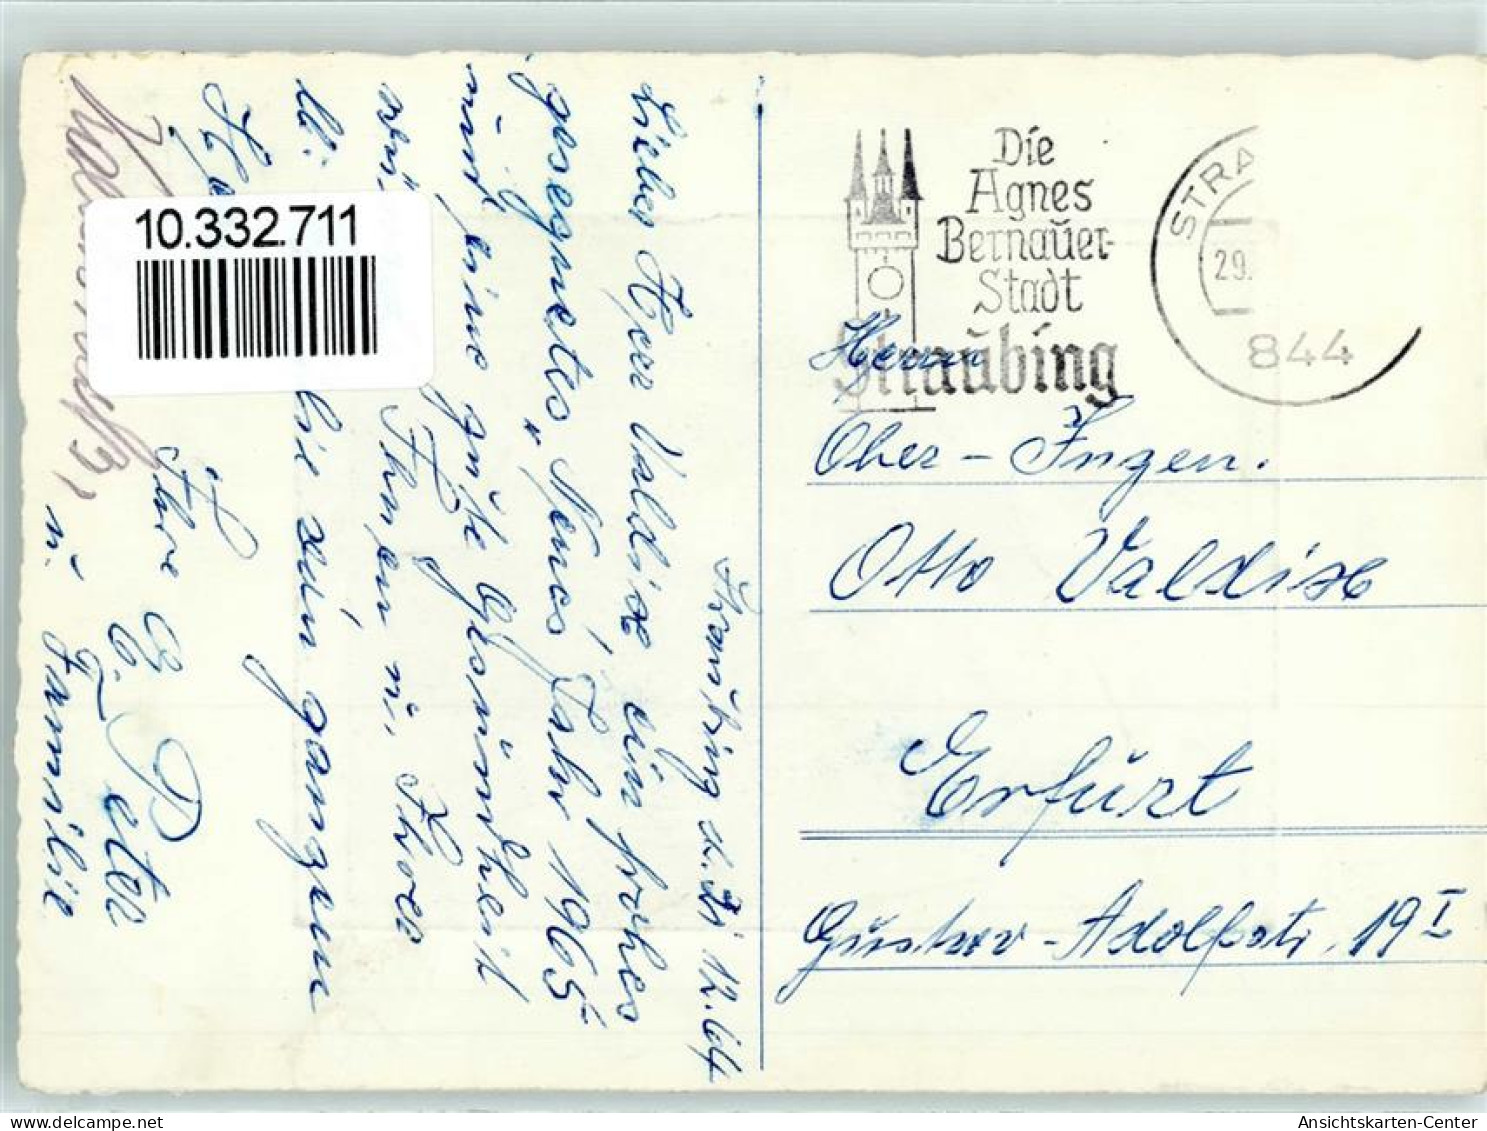 Straubing d. 12.64
Lieber Herr Valdix ein frohes
gesegnetes „Neues Jahr 1965"
und eine gute Gesundheit
Ihnen u. Ihrer
zum ganzen
Ihre
E. Peter
u. Familie
10.332.711
Die
Agnes
Bernauer-
Stadt
Straubing
STRA
29.
844
Herrn
Ober-Ingen.
Otto Valdix
Erfurt
Gustav-Adolfstr. 19 I
www.delcampe.net
Ansichtskarten-Center